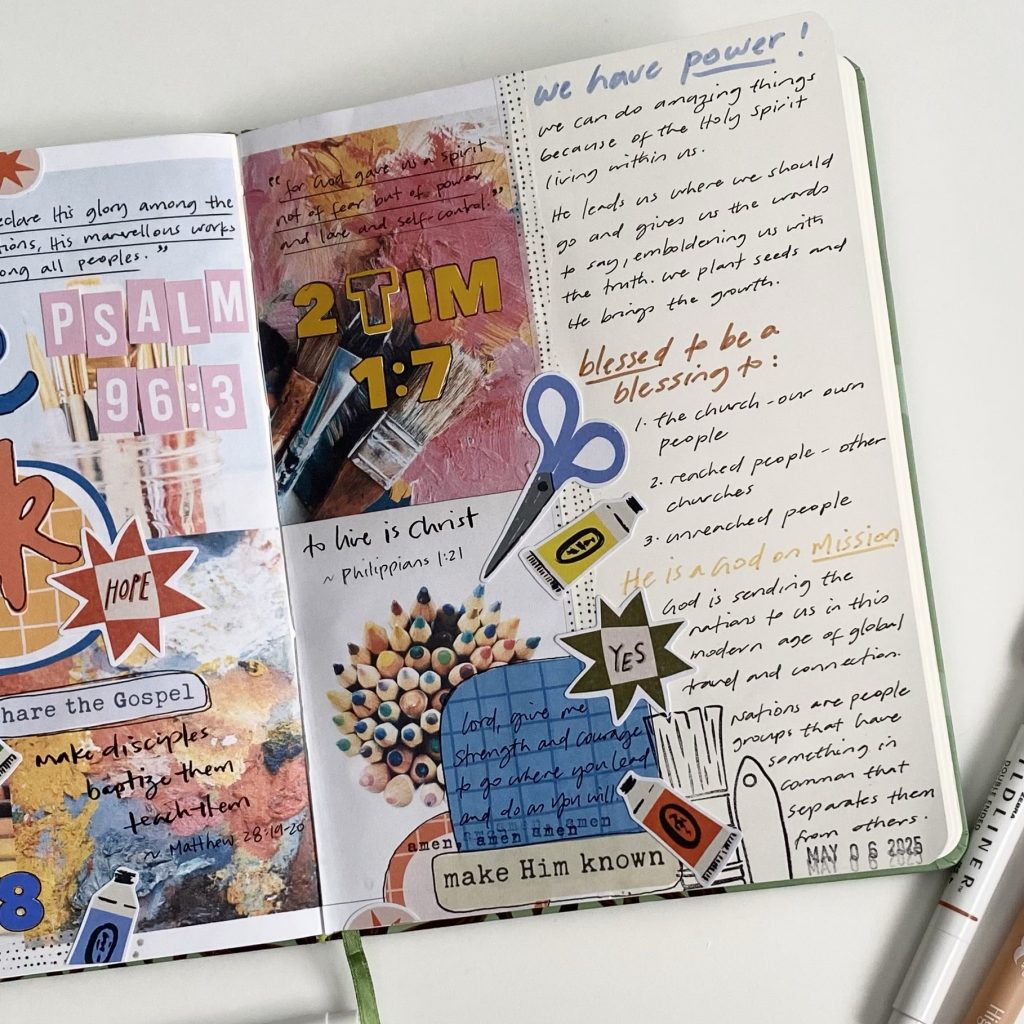 eclare His glory among the
tions, His marvellous works
ong all peoples."
PSALM
96:3
R
HOPE
hare the Gospel
make disciples
baptize them
teach them
~ Matthew 28:19-20
8
"for God gave us a spirit
not of fear but of power
and love and self-control."
2 TIM
1:7
to live is Christ
~ Philippians 1:21
YES
Lord, give me
strength and courage
to go where you lead
and do as you will.
amen, amen amen
make Him known
we have power!
we can do amazing things
because of the Holy Spirit
living within us.
He leads us where we should
go and gives us the words
to say, emboldening us with
the truth. we plant seeds and
He brings the growth.
blessed to be a
blessing to:
1. the church - our own
people
2. reached people - other
churches
3. unreached people
He is a God on Mission
God is sending the
nations to us in this
modern age of global
travel and connection.
Nations are people
groups that have
something in
common that
separates them
from others.
MAY 06 2025
ILDLINER
DOUBLE ENDED
ZEBRA